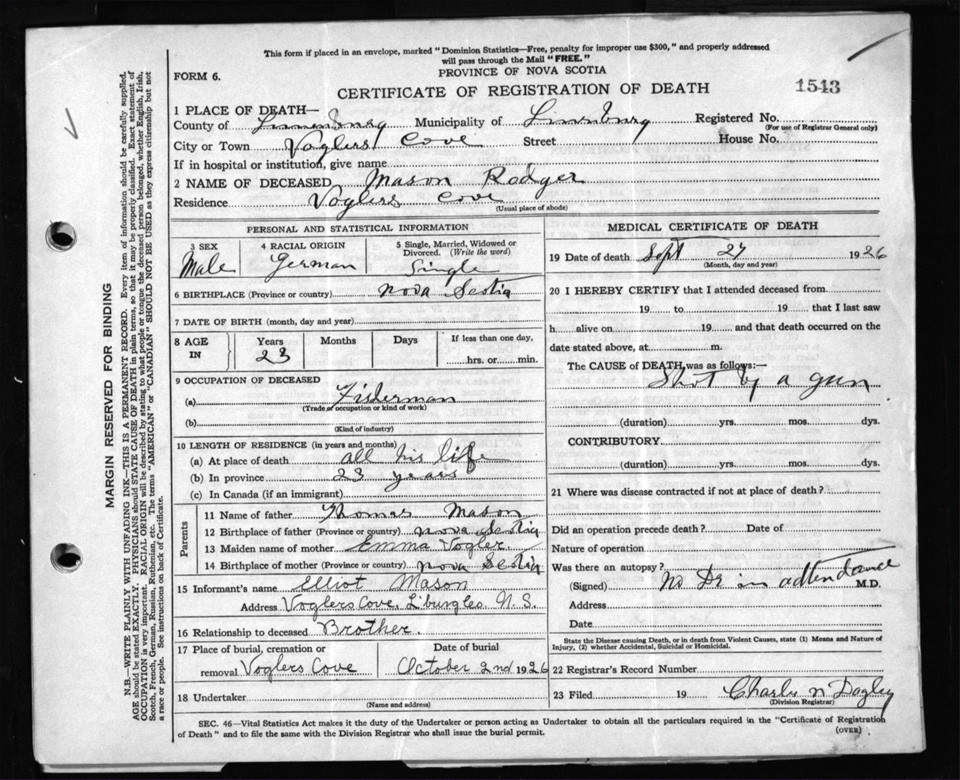 This form if placed in an envelope, marked "Dominion Statistics—Free, penalty for improper use $300," and properly addressed
will pass through the Mail "FREE."
FORM 6.
PROVINCE OF NOVA SCOTIA
CERTIFICATE OF REGISTRATION OF DEATH
1543
1 PLACE OF DEATH—
County of Lunenburg Municipality of Lunenburg Registered No.
(For use of Registrar General only)
City or Town Voglers Cove Street House No.
If in hospital or institution, give name
2 NAME OF DECEASED Mason Rodger
Residence Voglers Cove
(Usual place of abode)
PERSONAL AND STATISTICAL INFORMATION
3 SEX 4 RACIAL ORIGIN 5 Single, Married, Widowed or
Divorced. (Write the word)
Male German Single
6 BIRTHPLACE (Province or country) Nova Scotia
7 DATE OF BIRTH (month, day and year)
8 AGE IN Years Months Days If less than one day,
23 hrs. or min.
9 OCCUPATION OF DECEASED
(a) Fisherman
(Trade of occupation or kind of work)
(b)
(Kind of industry)
10 LENGTH OF RESIDENCE (in years and months)
(a) At place of death all his life
(b) In province 23 years
(c) In Canada (if an immigrant)
Parents
11 Name of father Thomas Mason
12 Birthplace of father (Province or country) Nova Scotia
13 Maiden name of mother Emma Vogler.
14 Birthplace of mother (Province or country) Nova Scotia
15 Informant's name Elliot Mason
Address Voglers Cove, L'burg Co. N.S.
16 Relationship to deceased Brother.
17 Place of burial, cremation or Date of burial
removal Voglers Cove October 2nd 1926
18 Undertaker
(Name and address)
MEDICAL CERTIFICATE OF DEATH
19 Date of death Sept 27 1926
(Month, day and year)
20 I HEREBY CERTIFY that I attended deceased from
19 to 19 that I last saw
h alive on 19 and that death occurred on the
date stated above, at m.
The CAUSE of DEATH was as follows:
Shot by a gun
(duration) yrs. mos. dys.
CONTRIBUTORY
(duration) yrs. mos. dys.
21 Where was disease contracted if not at place of death?
Did an operation precede death? Date of
Nature of operation
Was there an autopsy?
(Signed) No Dr in attendance M.D.
Address
Date
State the Disease causing Death, or in death from Violent Causes, state (1) Means and Nature of
Injury, (2) whether Accidental, Suicidal or Homicidal.
22 Registrar's Record Number
23 Filed 19 Charles N
(Division Registrar)
SEC. 46—Vital Statistics Act makes it the duty of the Undertaker or person acting as Undertaker to obtain all the particulars required in the "Certificate of Registration
of Death" and to file the same with the Division Registrar who shall issue the burial permit.
(OVER)
MARGIN RESERVED FOR BINDING
N.B.—WRITE PLAINLY WITH UNFADING INK—THIS IS A PERMANENT RECORD. Every item of information should be carefully supplied.
AGE should be stated EXACTLY. PHYSICIANS should STATE CAUSE OF DEATH in plain terms, so that it may be properly classified. Exact statement of
OCCUPATION is very important. RACIAL ORIGIN will be described by stating to what people or tongue the deceased person belonged, whether English, Irish,
Scotch, French, German, Russian, Ruthenian, etc. The terms "AMERICAN" or "CANADIAN" SHOULD NOT BE USED as they express citizenship but not
a race or people. See instructions on back of Certificate.